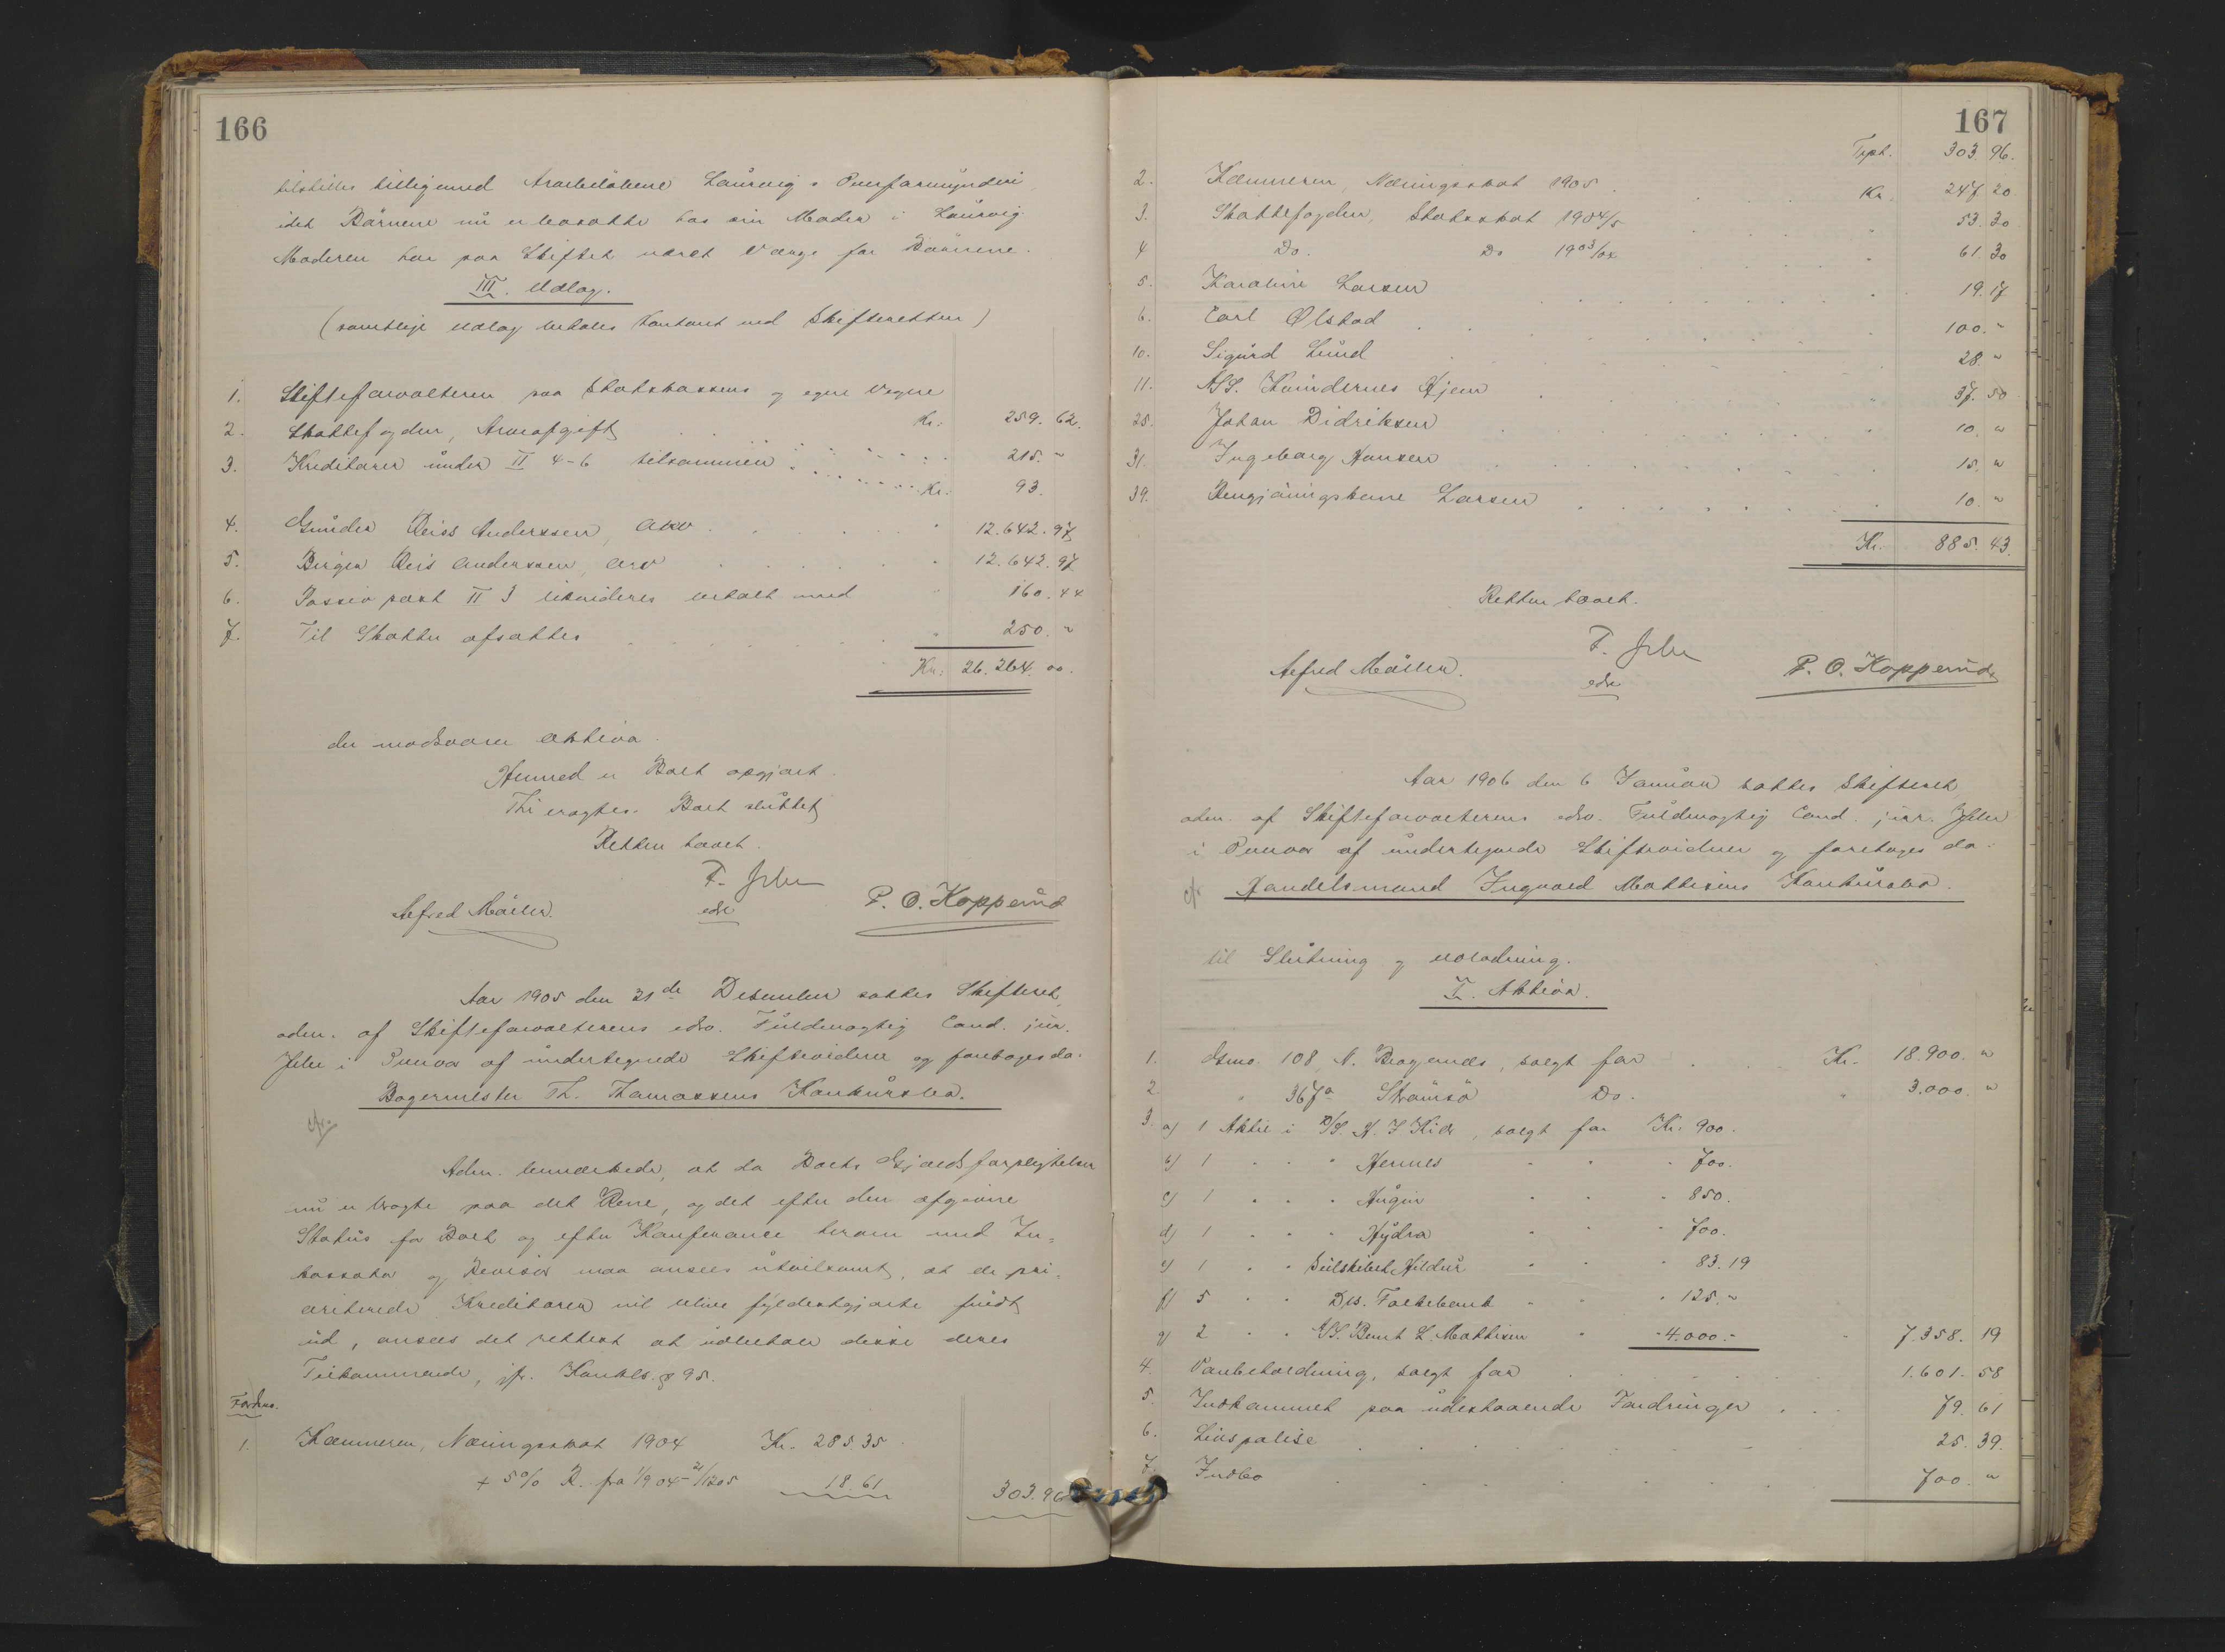 166
tilstilles tilligemed Arvebeløbene Laurvig's Overformynderi,
idet Børnene nu er bosatte hos sin Moder i Laurvig.
Moderen har paa Skiftet været Værge for Børnene.
III. Udlæg.
(samtlige Udlæg betales kontant ved Skifteretten)
1. Skifteforvalteren paa Statskassens og egne Vegne Kr. 259. 62.
2. Skattefogden, Arveafgift 215. "
3. Kreditorer under II 4-6 tilsammen Kr. 93.
4. Gunder Reiss Anderssen, Arv 12.642. 97
5. Birger Reis Anderssen, Arv 12.642. 97
6. Passiv post II 3 likvideres betalt med 160. 44
7. Til Skatter afsættes 250. "
Kr. 26.264. 00.
der modsvarer Aktiva.
Hermed er Boet opgjort.
Thi eragtes: Boet sluttet
Retten hævet.
Alfred Møller. F. Jelu P. O. Kopperud
edsv
Aar 1905 den 21de December sattes Skifteret,
adm. af Skifteforvalterens edsv. Fuldmægtig Cand. jur.
Jelu i Overvær af undertegnede Skiftevidner og foretoges da:
Bagermester Th. Thomassens Konkursbo.
cfr.
Adm. bemærkede, at da Boets Gjældsforpligtelser
nu er bragte paa det Rene, og det efter den afgivne
Status for Boet og efter Konferance herom med In-
kassator og Revisor maa ansees utvilsomt, at de pri-
oriterede Kreditorer vil blive fyldestgjorte fuldt
ud, ansees det rettest at udbetale disse deres
Tilkommende, jfr. Konkls. § 95.
Fordrno.
1. Kæmneren, Næringsskat 1904 Kr. 285. 35
+ 5% R. fra 1/9 04 - 21/12 05 18. 61 303. 96
167
Trpt. 303. 96.
2. Kæmneren, Næringsskat 1905 Kr. 247. 20
3. Skattefogden, Statsskat 1904/5 53. 30
4 Do. Do 1903/04 61. 30
5. Karoline Larsen 19. 17
6. Carl Ølstad 100. "
10. Sigurd Lund 28 "
11. A/S. Kvindernes Hjem 37. 50
25. Johan Didriksen 10. "
31. Ingeborg Hansen 15. "
39. Rengjøringskone Larsen 10. "
Kr. 885. 43.
Retten hævet.
Alfred Møller. F. Jelu P. O. Kopperud
edsv
Aar 1906 den 6 Januar sattes Skifteret,
adm. af Skifteforvalterens edsv. Fuldmægtig Cand. jur. Jelu
i Overvær af undertegnede Skiftevidner og foretoges da:
cfr. Handelsmand Ingvald Mathisens Konkursbo.
til Slutning og udlodning.
I. Aktiva.
1. Gmno. 108 N. Bragernæs, solgt for Kr. 18.900. "
2 " 367a Strømsø Do. " 3.000. "
3. a) 1 Aktie i D/S. A. I Kiær, solgt for Kr. 900.
b) 1 " " " Hermes " " " 700.
c) 1 " " " Hugin " " " 850.
d) 1 " " " Hydra " " " 700.
e) 1 " " Seilskibet Hildur " " " 83. 19
f) 5 " " Drs. Folkebank " " 125. "
g) 2 " " A/S. Bernt L. Mathisen " - 4.000.- " 7.358. 19
4. Varebeholdning, solgt for 1.601. 58
5. Indkommet paa udestaaende Fordringer 79. 61
6. Livspolise 25. 39.
7. Indbo 700. "